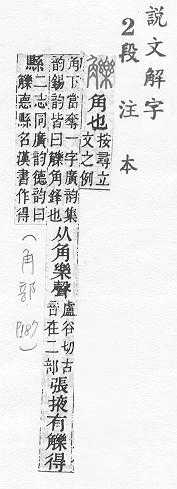 說文解字
2段注本
觻 角也 按尋立
文之例
角下當奪一字廣韵集
韵錫韵皆曰觻角鋒也
从角樂聲
盧谷切古
音在二部
張掖有觻得
縣二志同廣韵德韵曰
觻悳縣名漢書作得
(角部 P187)